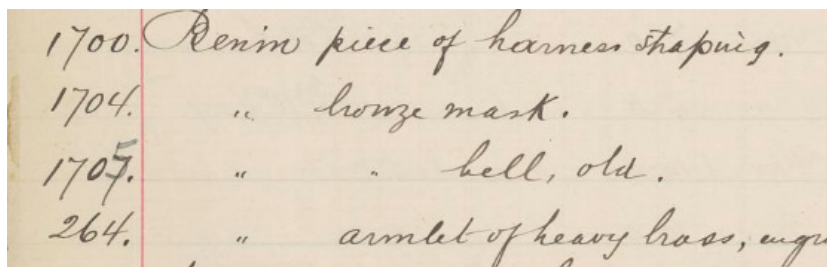 1700. Benin piece of harness strapping.
1704. " bronze mask.
1705. " " bell, old.
264. " armlet of heavy brass,